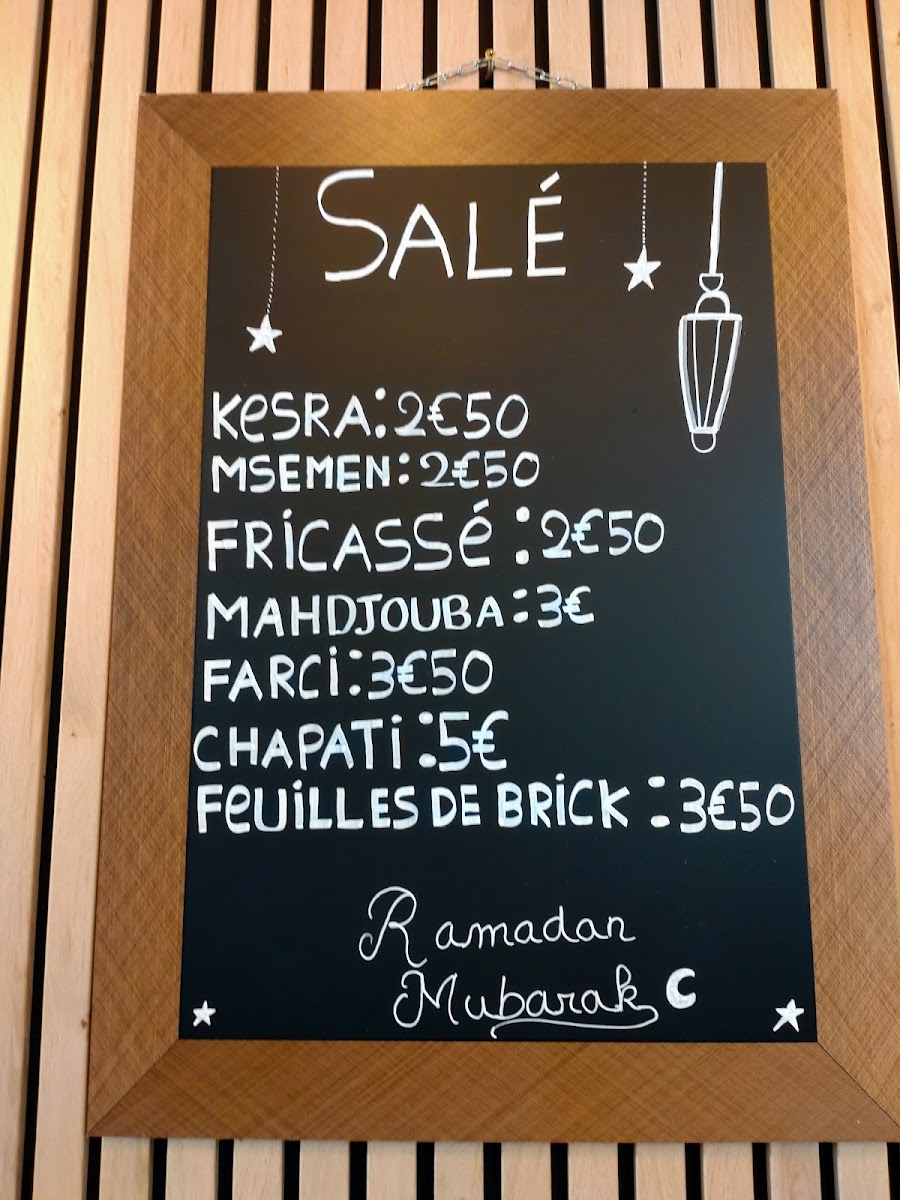 SALÉ
KeSRA: 2€50
MSEMEN: 2€50
FRiCASSé: 2€50
MAHDJOUBA: 3€
FARCi: 3€50
CHAPATi: 5€
FeUiLLES DE BRiCK: 3€50
Ramadan
Mubarak